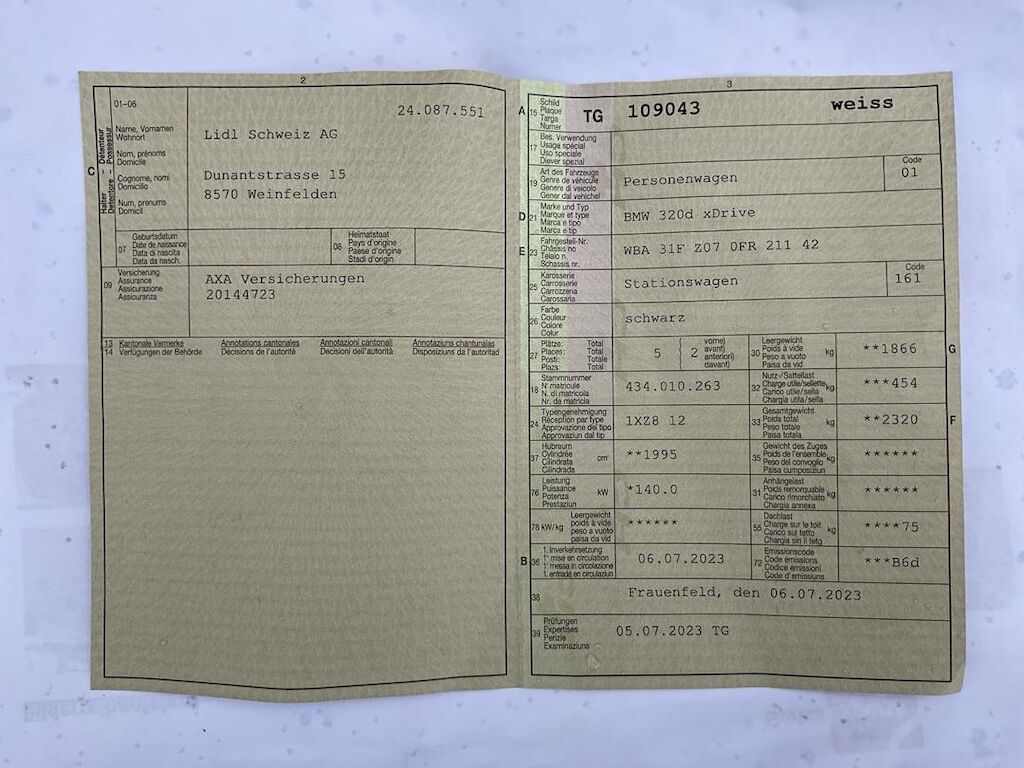 2
01–06
24.087.551
C
Halter – Détenteur
Detentore – Possessur
Name, Vornamen
Wohnort
Nom, prénoms
Domicile
Cognome, nomi
Domicilio
Num, prenums
Domicil
Lidl Schweiz AG
Dunantstrasse 15
8570 Weinfelden
07
Geburtsdatum
Date de naissance
Data di nascita
Data da nasch.
08
Heimatstaat
Pays d'origine
Paese d'origine
Stadi d'origin
09
Versicherung
Assurance
Assicurazione
Assicuranza
AXA Versicherungen
20144723
13 Kantonale Vermerke Annotations cantonales Annotazioni cantonali Annotaziuns chantunalas
14 Verfügungen der Behörde Décisions de l'autorité Decisioni dell'autorità Disposiziuns da l'autoritad
3
A 15
Schild
Plaque
Targa
Numer
TG 109043 weiss
17
Bes. Verwendung
Usage spécial
Uso speciale
Diever spezial
19
Art des Fahrzeugs
Genre de véhicule
Genere di veicolo
Gener dal vehichel
Personenwagen
Code
01
D 21
Marke und Typ
Marque et type
Marca e tipo
Marca e tip
BMW 320d xDrive
E 23
Fahrgestell-Nr.
Châssis no
Telaio n.
Schassis nr.
WBA 31F Z07 0FR 211 42
25
Karosserie
Carrosserie
Carrozzeria
Carossaria
Stationswagen
Code
161
26
Farbe
Couleur
Colore
Colur
schwarz
27
Plätze: Total
Places: Total
Posti: Totale
Plazs: Total
5 ( 2
vorne)
avant)
anteriori)
davant)
30
Leergewicht
Poids à vide
Peso a vuoto
Paisa da vid
kg
**1866
G
18
Stammnummer
N° matricule
N. di matricola
Nr. da matricla
434.010.263
32
Nutz-/Sattellast
Charge utile/sellette
Carico utile/sella
Chargia utila/sella
kg
***454
24
Typengenehmigung
Réception par type
Approvazione del tipo
Approvaziun dal tip
1XZ8 12
33
Gesamtgewicht
Poids total
Peso totale
Paisa totala
kg
**2320
F
37
Hubraum
Cylindrée
Cilindrata
Cilindrada
cm³
**1995
35
Gewicht des Zuges
Poids de l'ensemble
Peso del convoglio
Paisa cumposiziun
kg
******
76
Leistung
Puissance
Potenza
Prestaziun
kW
*140.0
31
Anhängelast
Poids remorquable
Carico rimorchiato
Chargia annexa
kg
******
78 kW/kg
Leergewicht
poids à vide
peso a vuoto
paisa da vid
******
55
Dachlast
Charge sur le toit
Carico sul tetto
Chargia sin il tetg
kg
****75
B 36
1. Inverkehrsetzung
1re mise en circulation
1a messa in circolazione
1. entrada en circulaziun
06.07.2023
72
Emissionscode
Code émissions
Codice emissioni
Code d'emissiuns
***B6d
38
Frauenfeld, den 06.07.2023
39
Prüfungen
Expertises
Perizie
Examinaziuns
05.07.2023 TG